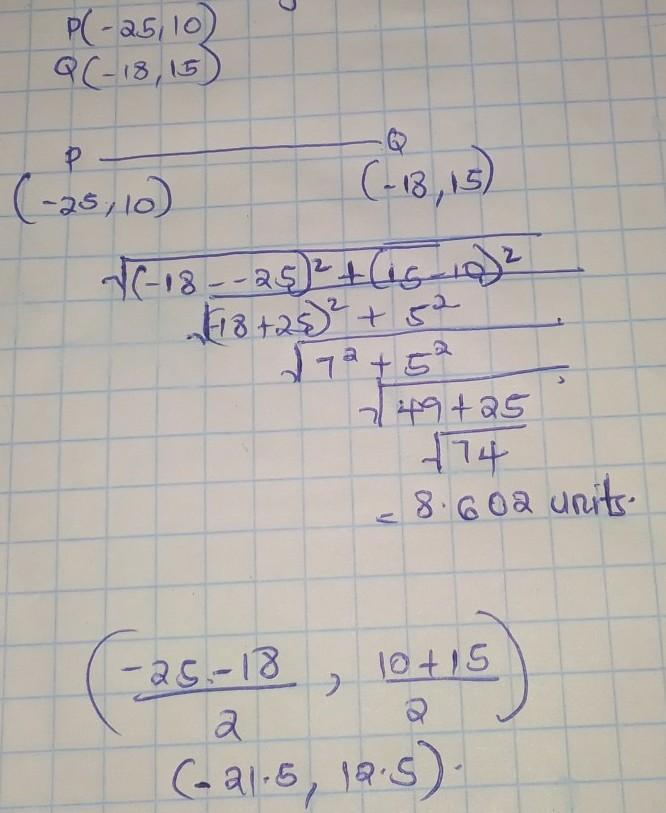 P(-25,10)
Q(-18,15)
P Q
(-25,10) (-18,15)
√(-18--25)² + (15-10)²
√(-18+25)² + 5²
√7² + 5²
√49+25
√74
= 8.602 units.
(-25-18/2, 10+15/2)
(-21.5, 12.5).